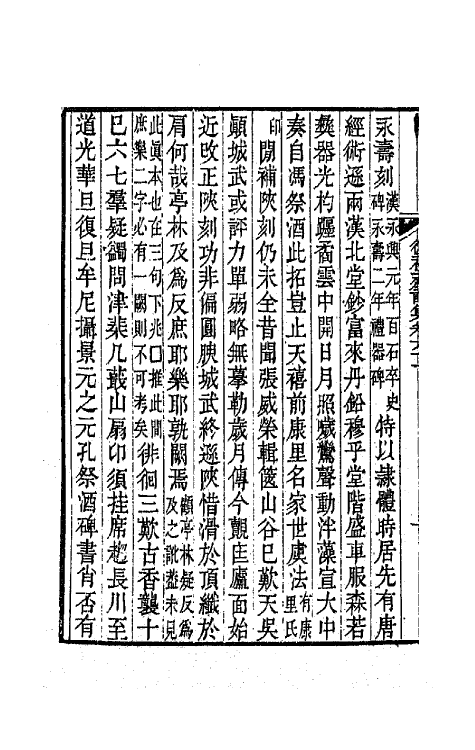 永壽刻漢永興元年百石卒史碑永壽二年禮器碑特以隸體時居先有唐
經術遜兩漢北堂鈔富來丹鉛穆乎堂階盛車服森若
彝器光杓躔矞雲中開日月照噦鸞聲動泮藻宣大中
奏自馮祭酒此拓豈止天禧前康里名家世虞法有康里氏
印閒補陜刻仍未全昔聞張威榮輯篋山谷巳歎天吳
顚城武或評力單弱略無摹勒歲月傳今觀匡廬面始
近改正陜刻功非偏圓腴城武終遜陜惜滑於頂纖於
肩何哉亭林及爲反庶耶樂耶孰闕焉顧亭林疑反爲及之訛葢未見
此眞本也在三句下兆口推此間庶樂二字必有一闕則不可考矣徘徊三歎古香襲十
巳六七羣疑蠲問津棐几叢山扇卬須挂席趂長川至
道光華旦復旦牟尼攝景元之元孔祭酒碑書肖否有